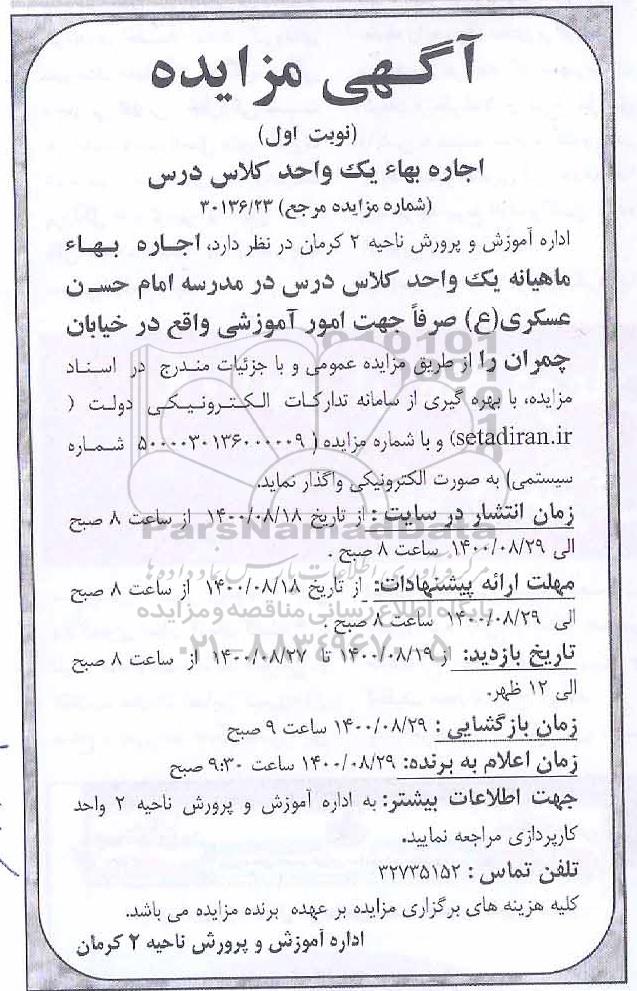 آگهی مزایده
(نوبت اول)
اجاره بهاء یک واحد کلاس درس
(شماره مزایده مرجع) ۳۰۱۳۶/۲۳
اداره آموزش و پرورش ناحیه ۲ کرمان در نظر دارد، اجاره بهاء
ماهیانه یک واحد کلاس درس در مدرسه امام حسن
عسکری(ع) صرفاً جهت امور آموزشی واقع در خیابان
چمران را از طریق مزایده عمومی و با جزئیات مندرج در اسناد
مزایده، با بهره گیری از سامانه تدارکات الکترونیکی دولت (
setadiran.ir) و با شماره مزایده ( ۵۰۰۰۰۳۰۱۳۶۰۰۰۰۰۹ شماره
سیستمی) به صورت الکترونیکی واگذار نماید.
زمان انتشار در سایت : از تاریخ ۱۴۰۰/۰۸/۱۸ از ساعت ۸ صبح
الی ۱۴۰۰/۰۸/۲۹ ساعت ۸ صبح .
مهلت ارائه پیشنهادات: از تاریخ ۱۴۰۰/۰۸/۱۸ از ساعت ۸ صبح
الی ۱۴۰۰/۰۸/۲۹ ساعت ۸ صبح .
تاریخ بازدید: از ۱۴۰۰/۰۸/۱۹ تا ۱۴۰۰/۰۸/۲۷ از ساعت ۸ صبح
الی ۱۲ ظهر.
زمان بازگشایی : ۱۴۰۰/۰۸/۲۹ ساعت ۹ صبح
زمان اعلام به برنده: ۱۴۰۰/۰۸/۲۹ ساعت ۹:۳۰ صبح
جهت اطلاعات بیشتر: به اداره آموزش و پرورش ناحیه ۲ واحد
کارپردازی مراجعه نمایید.
تلفن تماس : ۳۲۷۳۵۱۵۲
کلیه هزینه های برگزاری مزایده بر عهده برنده مزایده می باشد.
اداره آموزش و پرورش ناحیه ۲ کرمان
ParsNamadData
مرکز فرآوری اطلاعات پارس نماد داده ها
پایگاه اطلاع رسانی مناقصه و مزایده
۰۲۱-۸۸۳۴۹۶۷۰-۵